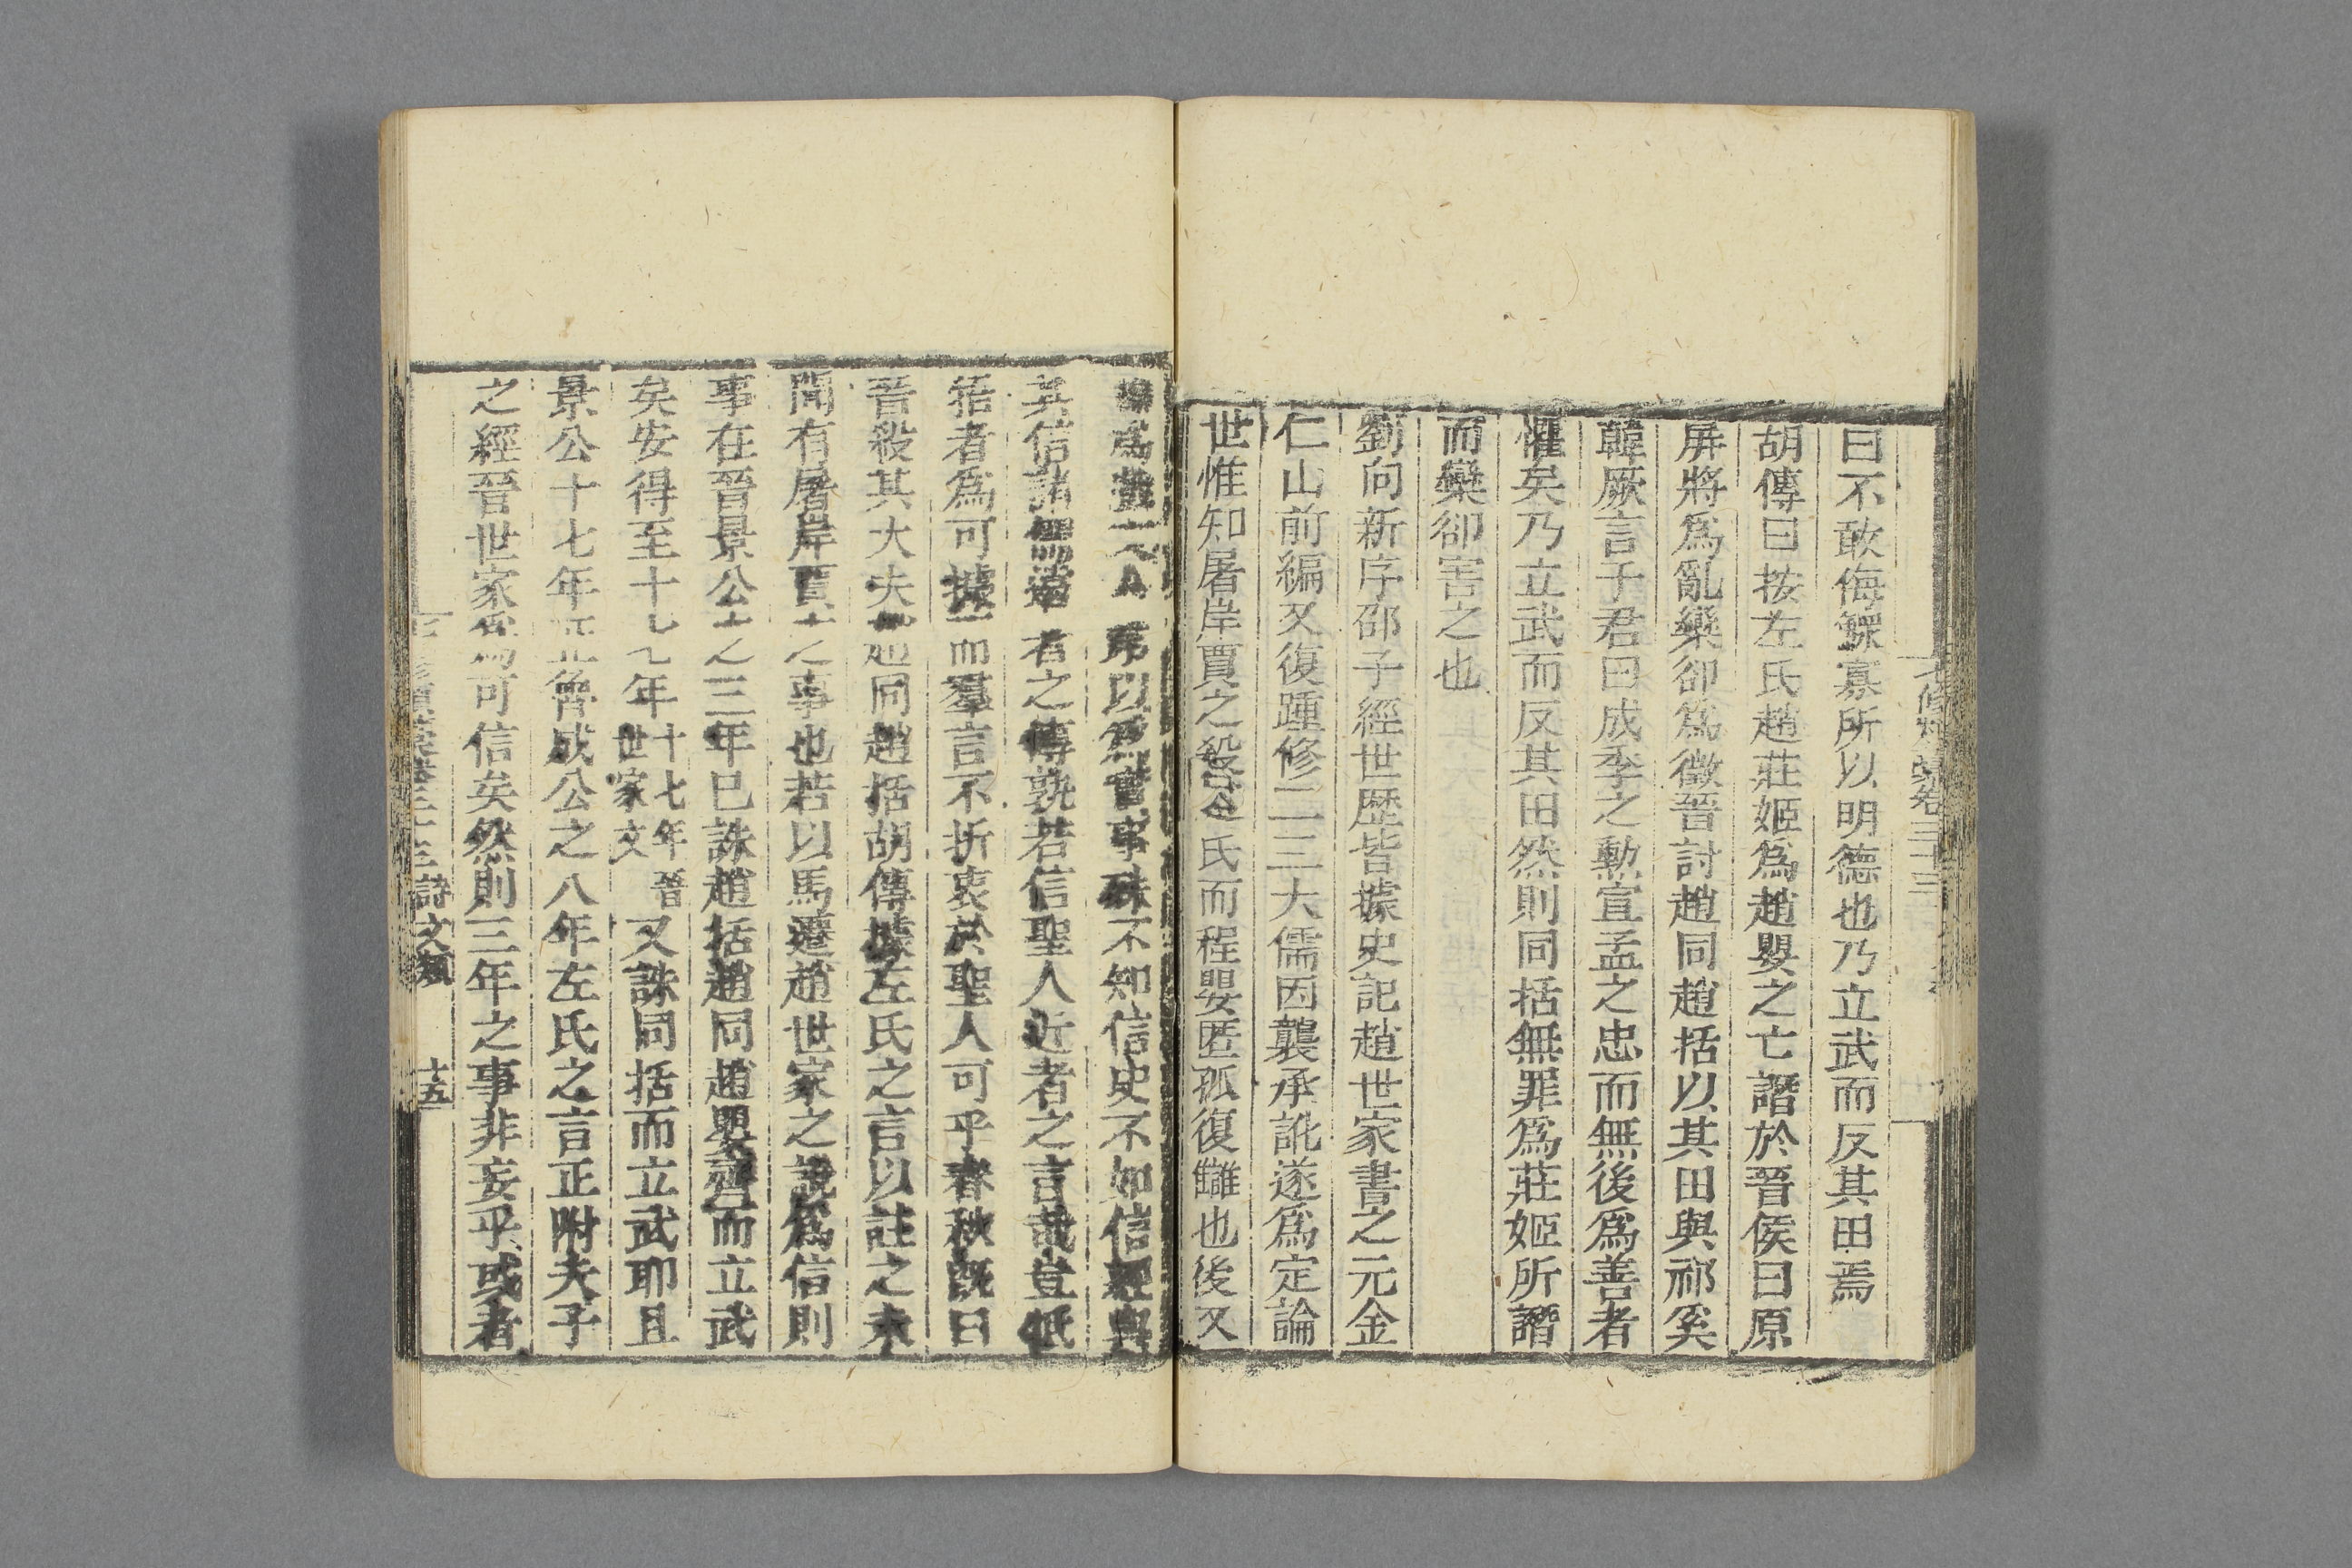 七修類藁卷三十三
曰不敢侮鰥寡所以明德也乃立武而反其田焉
胡傳曰按左氏趙莊姬爲趙嬰之亡譖於晉侯曰原
屏將爲亂欒卻爲徵晉討趙同趙括以其田與祁奚
韓厥言于君曰成季之勲宣孟之忠而無後爲善者
懼矣乃立武而反其田然則同括無罪爲莊姬所譖
而欒卻害之也
劉向新序邵子經世歷皆據史記趙世家書之元金
仁山前編又復踵修二三大儒因襲承訛遂爲定論
世惟知屠岸賈之殺趙氏而程嬰匿孤復讎也後又
爲 以爲實事殊不知信史不如信經與
其信諸 遠者之傳孰若信聖人近者之言哉豈
括者爲可據而羣言不折衷於聖人可乎春秋旣曰
晉殺其大夫趙同趙括胡傳據左氏之言以註之未
聞有屠岸賈之事也若以馬遷趙世家之說爲信則
事在晉景公之三年已誅趙括趙同趙嬰齊而立武
矣安得至十七年十七年晉世家文又誅同括而立武耶且
景公十七年正魯成公之八年左氏之言正附夫子
之經晉世家爲可信矣然則三年之事非妄乎或者
七修類藁卷三十三 詩文類 十五